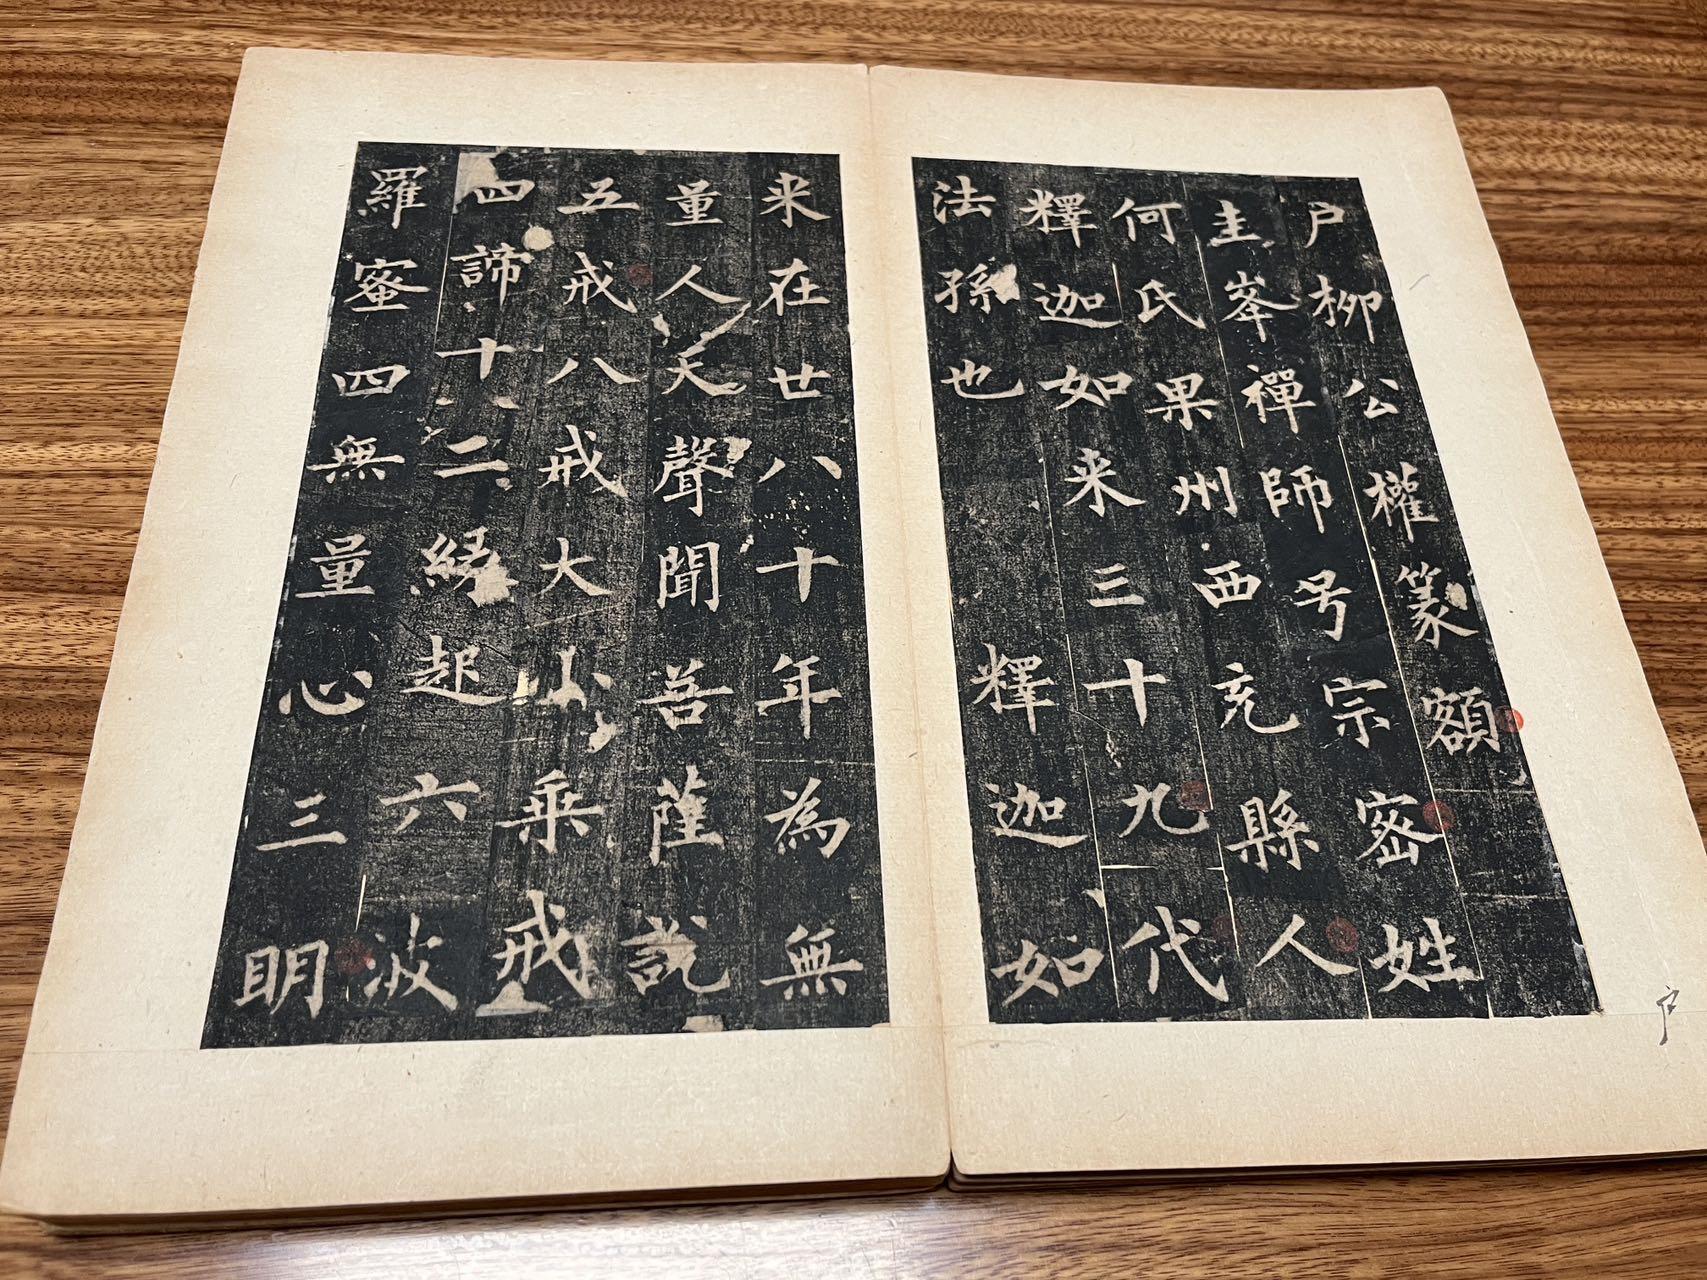 户柳公權篆額
圭峯禪師号宗密姓
何氏果州西充縣人
釋迦如来三十九代
法孫也 釋迦如
来在廿八十年為無
量人天聲聞菩薩說
五戒八戒大小乘戒
四諦十二緣起六波
羅蜜四無量心三明
户